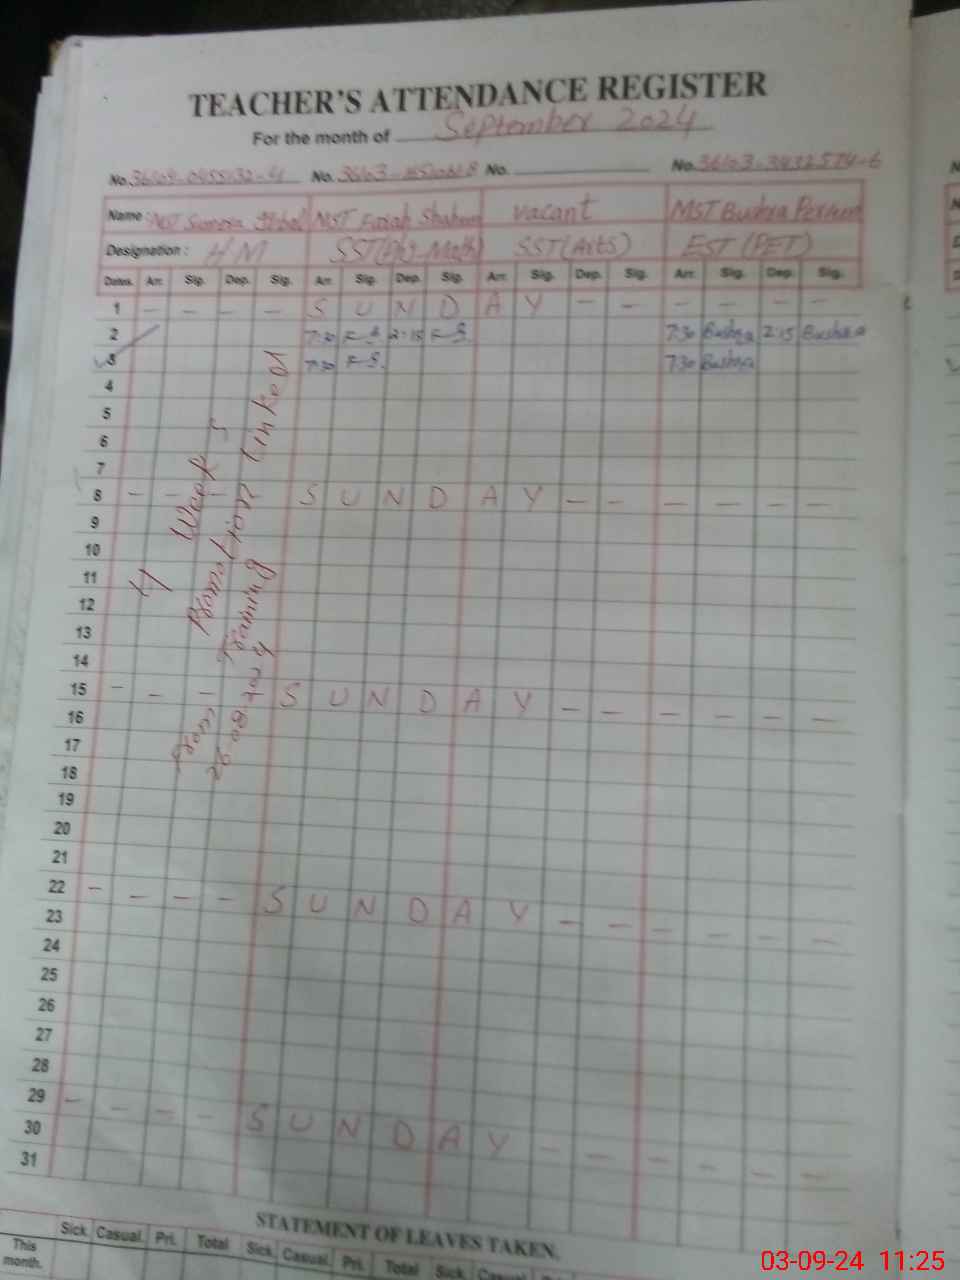 TEACHER'S ATTENDANCE REGISTER
For the month of September 2024
No. No. No. No.
Name: MST MST Farah Shaheen vacant MST Bushra Perveen
Designation: HM SST (Math) SST (Arts) EST (PET)
Dates. Arr. Sig. Dep. Sig. Arr. Sig. Dep. Sig. Arr. Sig. Dep. Sig. Arr. Sig. Dep. Sig.
1 - - - - S U N D A Y - - - - - -
2 7:30 F.S. 2:15 F.S. 7:30 Bushra 2:15 Bushra
3 7:30 F.S. 7:30 Bushra
4
5
6
7
8 - - - S U N D A Y - - - - - -
9
10
11
12
13
14
15 - - - S U N D A Y - - - - - -
16
17
18
19
20
21
22 - - - - S U N D A Y - - - - - -
23
24
25
26
27
28
29 - - - - S U N D A Y - - - - - -
30
31
4 Week's
Promotion linked
Training
from
26-08-2024
STATEMENT OF LEAVES TAKEN.
Sick. Casual. Pri. Total Sick. Casual. Pri. Total Sick. Casual.
This month.
03-09-24 11:25